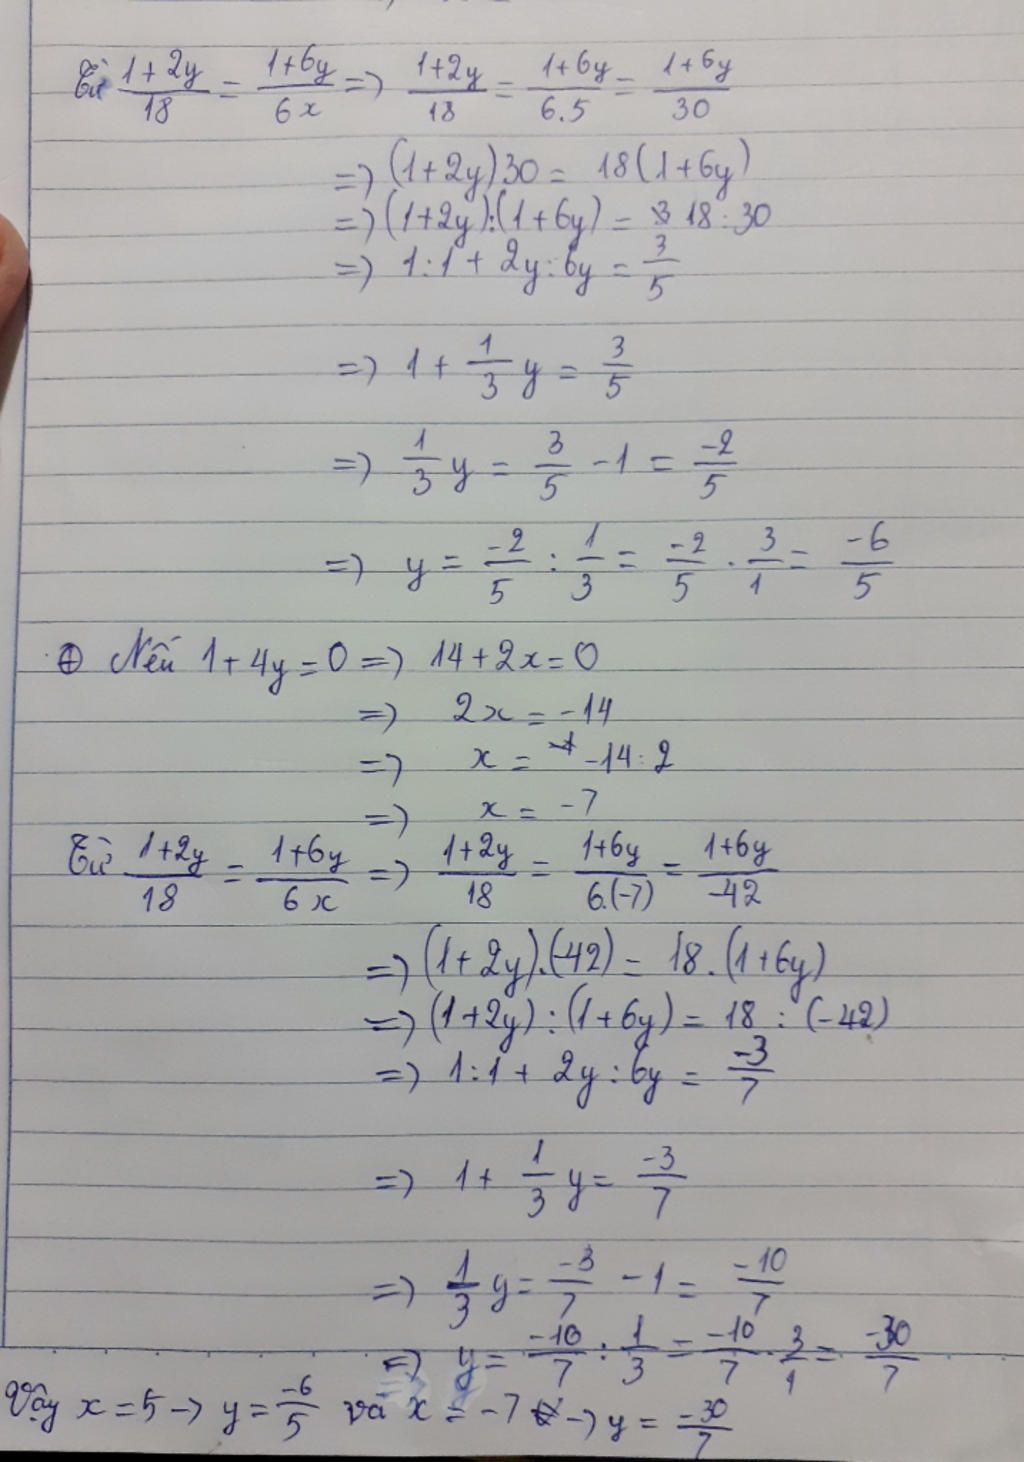 Từ (1+2y)/18 = (1+6y)/6x => (1+2y)/18 = (1+6y)/6.5 = (1+6y)/30
=> (1+2y)30 = 18(1+6y)
=> (1+2y):(1+6y) = 18:30
=> 1:1 + 2y:6y = 3/5
=> 1 + 1/3 y = 3/5
=> 1/3 y = 3/5 - 1 = -2/5
=> y = -2/5 : 1/3 = -2/5 . 3/1 = -6/5
⊕ Nếu 1+4y=0 => 14+2x=0
=> 2x = -14
=> x = -14:2
=> x = -7
Từ (1+2y)/18 = (1+6y)/6x => (1+2y)/18 = (1+6y)/6.(-7) = (1+6y)/-42
=> (1+2y).(-42) = 18.(1+6y)
=> (1+2y):(1+6y) = 18:(-42)
=> 1:1 + 2y:6y = -3/7
=> 1 + 1/3 y = -3/7
=> 1/3 y = -3/7 - 1 = -10/7
=> y = -10/7 : 1/3 = -10/7 . 3/1 = -30/7
Vậy x=5 -> y = -6/5 và x = -7 -> y = -30/7